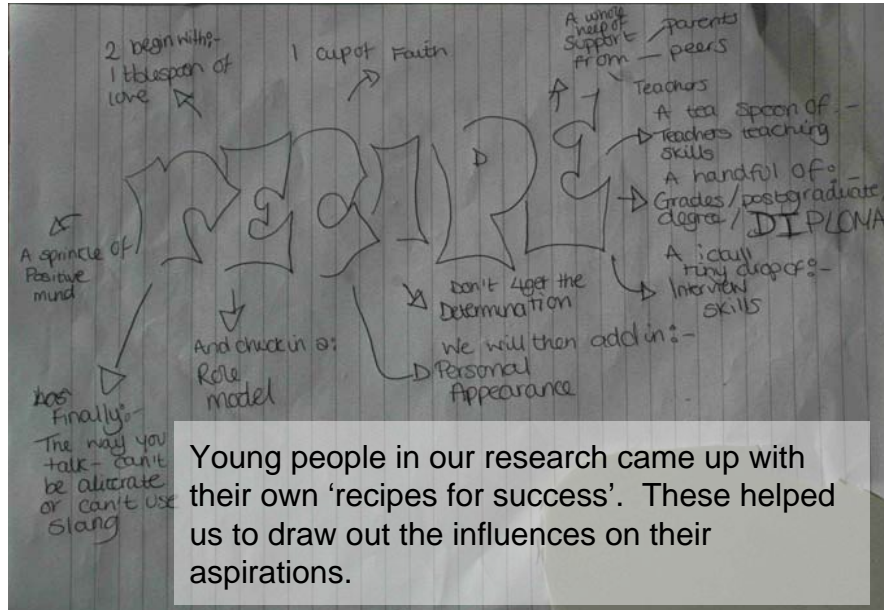 2 begin with:-
1 tblespoon of
love
1 cup of Faith
A whole
heep of
Support
from
parents
peers
Teachers
A tea spoon of :-
Teachers teaching
skills
A handful of :-
Grades/postgraduate
degree/ DIPLOMA
A
tiny drop of :-
Interview
skills
RECIPE
A sprincle of
Positive
mind
Don't 4get the
Determination
And chuck in a:
Role
model
We will then add in :-
Personal
Appearance
Finally:-
The way you
talk - can't
be aliterate
or can't use
Slang
Young people in our research came up with
their own ‘recipes for success’.  These helped
us to draw out the influences on their
aspirations.